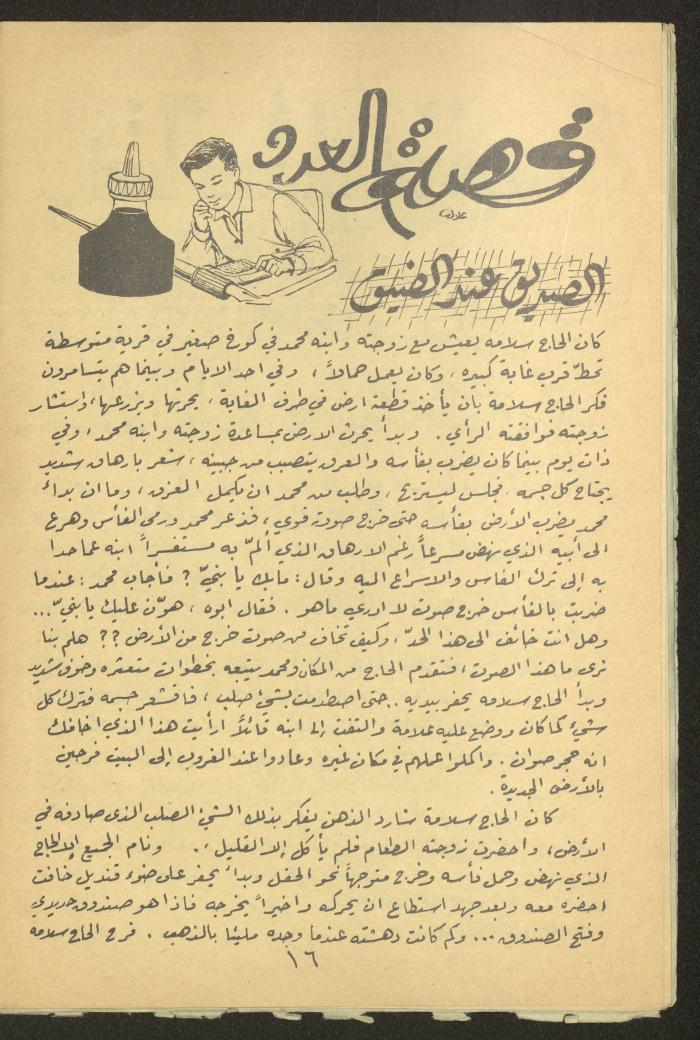 قصة العدد
الصديق عند الضيق
كان الحاج سلامه يعيش مع زوجته وابنه محمد في كوخ صغير في قرية متوسطة
تحطّ قرب غابة كبيره، وكان يعمل حمالاً، وفي احد الايام وبينما هم يتسامرون
فكر الحاج سلامة بان يأخذ قطعة ارض في طرف الغابة، يحرثها ويزرعها، واستشار
زوجته فوافقته الرأي. وبدأ يحرث الارض بمساعدة زوجته وابنه محمد، وفي
ذات يوم بينما كان يضرب بفأسه والعرق يتصبب من جبينه، شعر بارهاق شديد
يجتاح كل جسمه، فجلس ليستريح، وطلب من محمد ان يكمل العزق، وما ان بدأ
محمد يضرب الأرض بفأسه حتى خرج صوت قوي، فذعر محمد ورمى الفأس وهرع
الى أبيه الذي نهض مسرعاً رغم الارهاق الذي ألمّ به مستفسراً ابنه عما حدا
به إلى ترك الفاس والاسراع اليه وقال: مابك يا بنيّ؟ فأجاب محمد: عندما
ضربت بالفأس خرج صوت لا ادري ماهو. فقال ابوه، هوّن عليك يا بنيّ...
وهل انت خائف الى هذا الحدّ، وكيف تخاف من صوت خرج من الأرض؟؟ هلم بنا
نرى ما هذا الصوت، فتقدم الحاج من المكان ومحمد يتبعه بخطوات متعثره وخوف شديد
وبدأ الحاج سلامه يحفر بيديه.. حتى اصطدمت بشيء صلب، فاقشعر جسمه فترك كل
شيء كما كان ووضع عليه علامة والتفت إلى ابنه قائلاً أرأيت هذا الذي اخافك
انه حجر صوان. واكملوا عملهم في مكان غيره وعادوا عند الغروب إلى البيت فرحين
بالأرض الجديدة.
كان الحاج سلامة شارد الذهن يفكر بذلك الشيء الصلب الذي صادفه في
الأرض، واحضرت زوجته الطعام فلم يأكل إلا القليل.. ونام الجميع إلا الحاج
الذي نهض وحمل فأسه وخرج متوجهاً نحو الحقل وبدأ يحفر على ضوء قنديل خافت
احضره معه وبعد جهد استطاع ان يحركه واخيراً يخرجه فاذا هو صندوق حديدي
وفتح الصندوق... وكم كانت دهشته عندما وجده مليئا بالذهب. فرح الحاج سلامه
١٦